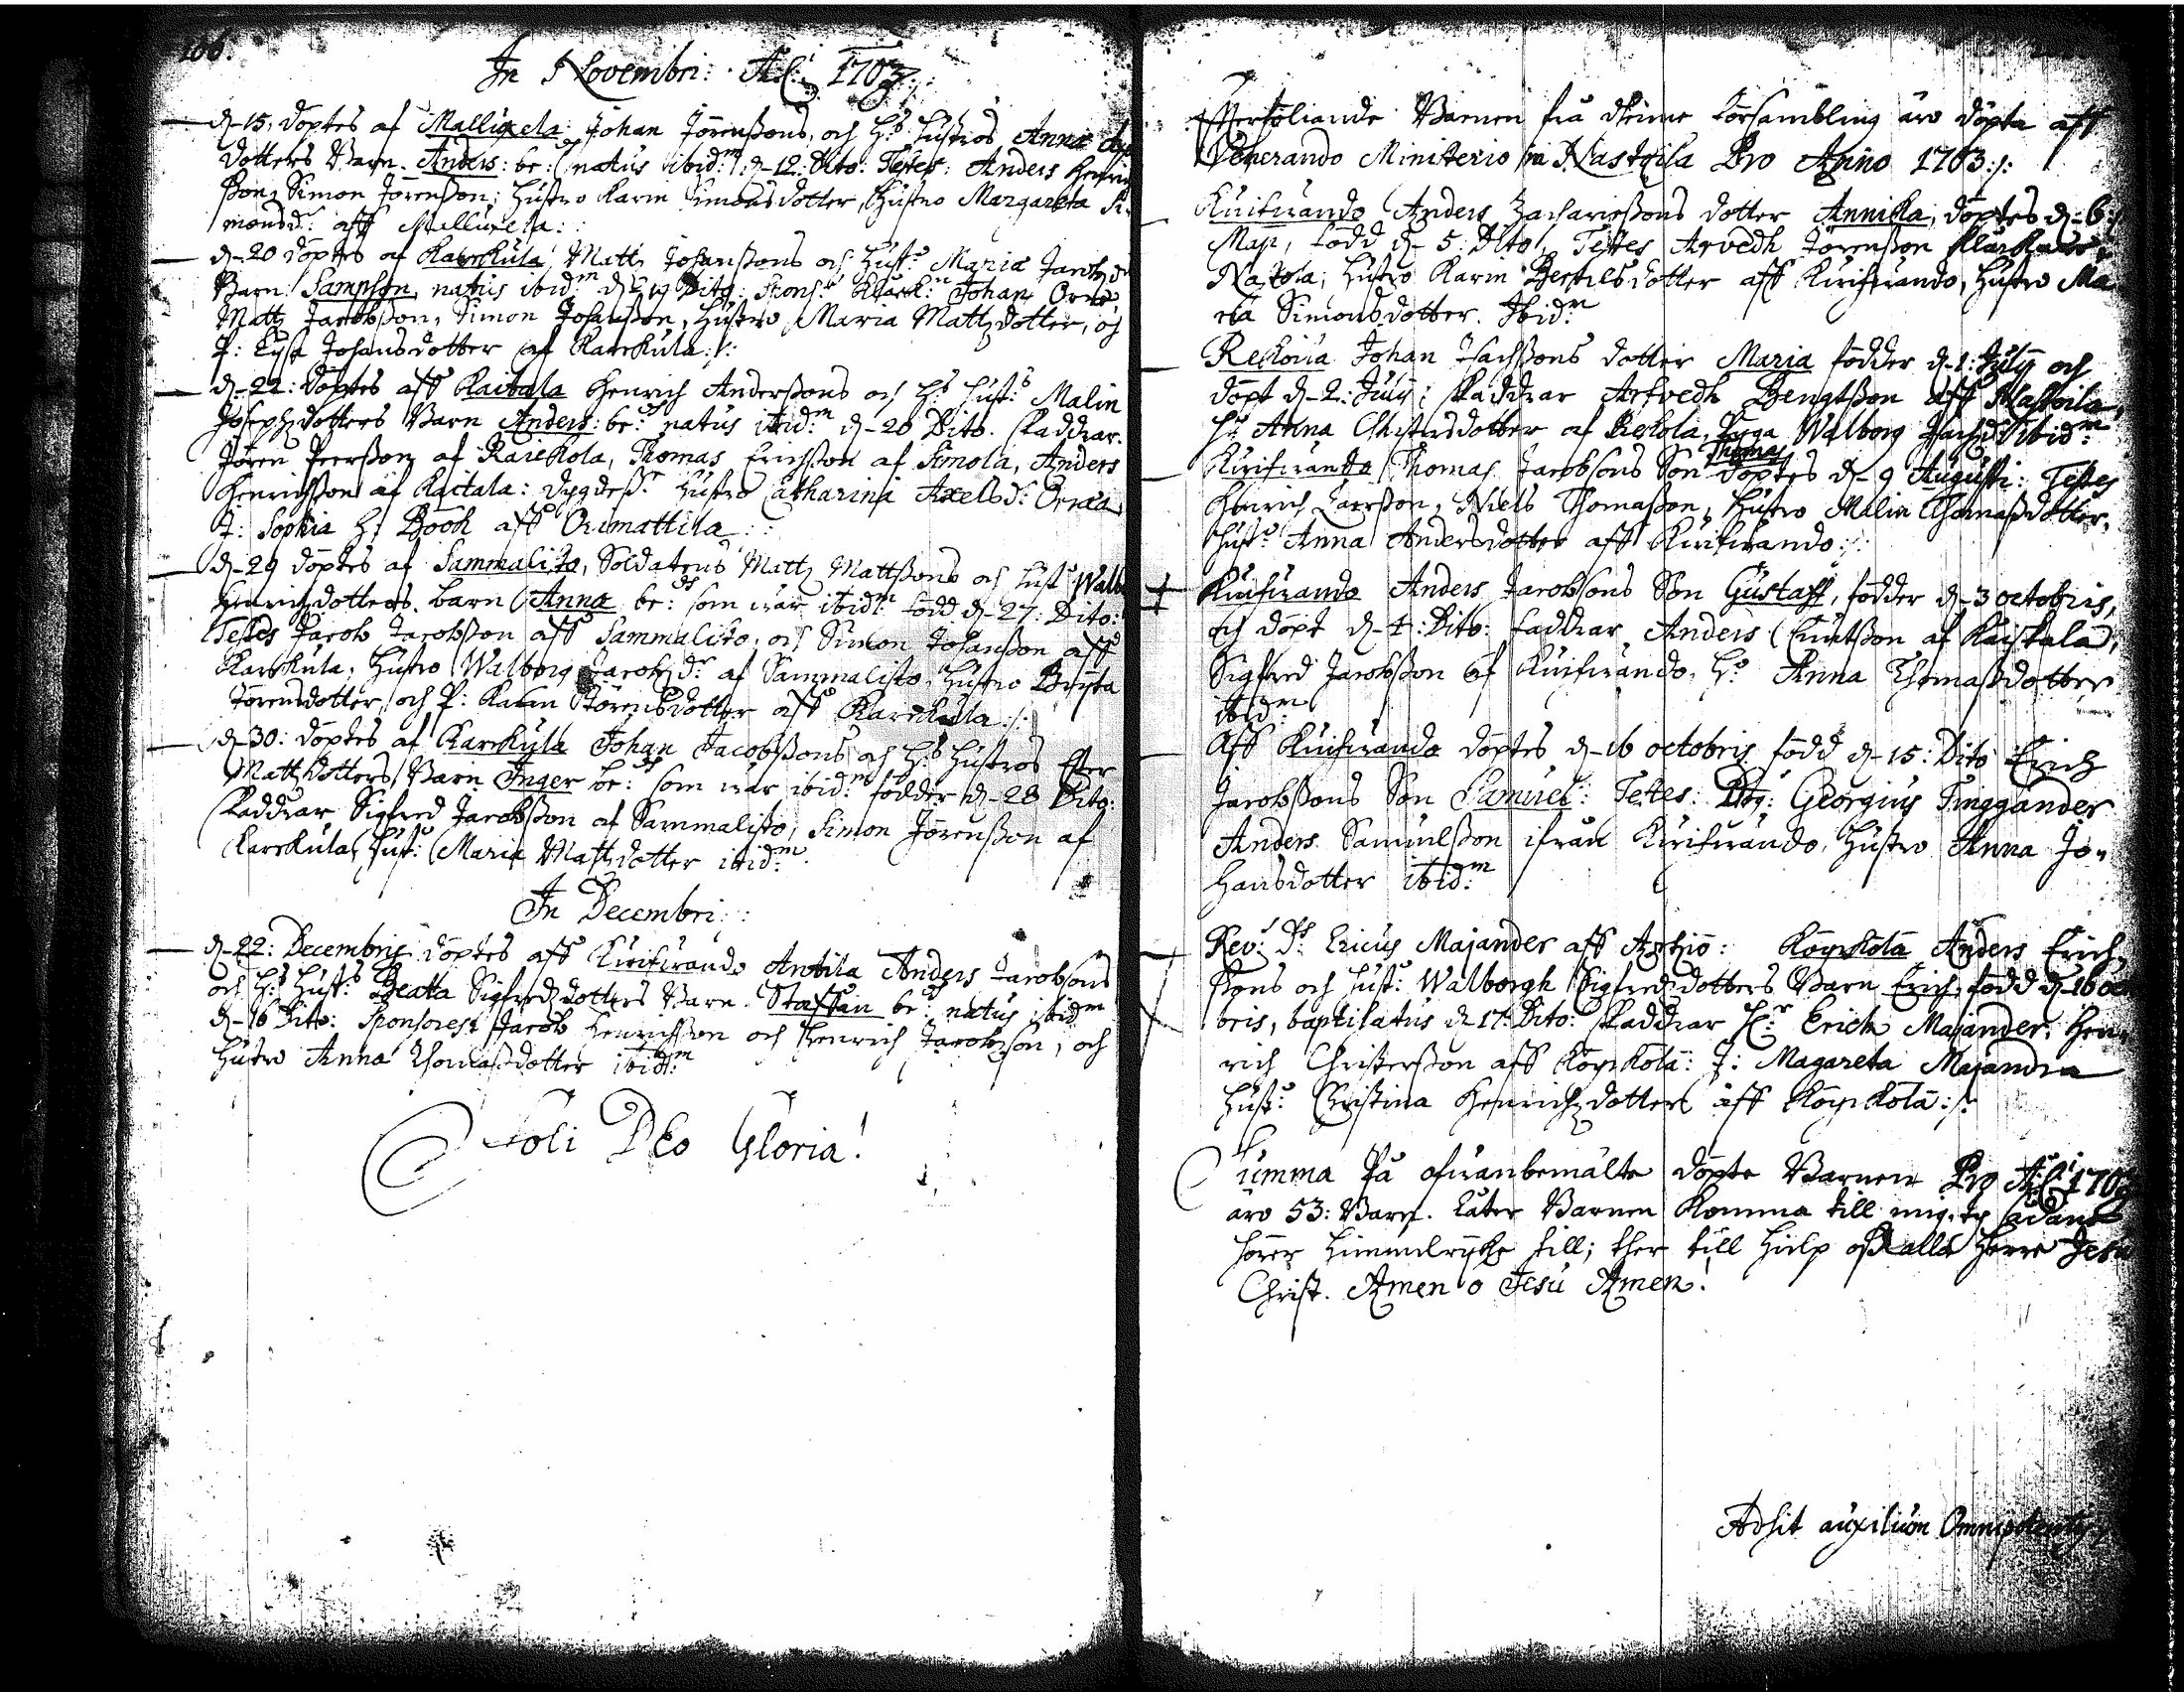 166.
In Novembri: A:C: 1703.
d. 15. döptes af Mallugela: Johan Jörenßons, och H:s Hustros Anna
dotters Barn. Anders: be:d natus ibid:m d. 12. Dito: Testes: Anders Henrich
ßon, Simon Jörenßon; Hustro Karin Simonsdotter, Hustro Margareta Si-
monsd:r aff Mallugela::
d. 20 döptes af Karekula, Mattz Johanßons och Hust:s Maria Jacobzd:r
Barn: Sampson, natus ibid:m d. 19 Dito: Spons:s Klock:n Johan Orre
Mattz Jacobßon, Simon Johanßon, Hustro Maria Mattzdotter, och
P: Lijsa Johansdotter af Karekula:/:
d. 22: döptes aff Kaitala Henrich Anderßons och H:s Hust:s Malin
Josephzdotters Barn Anders: be:d natus ibid:m d. 20 Dito. Faddrar.
Jören Peerßon af Kaiekola, Thomas Erichßon af Simola, Anders
Henrichßon af Kaitala: dygdeß:e Hustro Catharina Axelsd:r Orræa,
J: Sophia H: Bööh aff Orimattila::
d. 29 döptes af Sammalisto, Soldatens Mattz Mattßons och Hust:s Walb
Henrichzdotters barn Anna be:d som war ibid:m född d. 27: Dito:
Testes Jacob Jacobßon aff Sammalisto, och Simon Johanßon aff
Karekula, Hustro Walborg Jacobzd:r af Sammalisto, Hustro Brijta
Jörensdotter, och P: Karin Jörensdotter aff Karekula:/:
d. 30: döptes af Karekula Johan Jacobßons och H:s Hustros Ester
Mattzdotters Barn Inger be:d som war ibid:m födder d. 28 Dito:
Faddrar Sigfred Jacobßon af Sammalisto, Simon Jörenßon af
Karekula, Hust: Maria Mattzdotter ibid:m
In Decembri::
d. 22: Decembris döptes aff Kuifwando Antila Anders Jacobsons
och H:s Hust:s Beata Sigfredzdotters Barn. Staffan be:d natus ibid:m
d. 16 Dito: Sponsores: Jacob Henrichßon och Henrich Jacobson, och
Hustro Anna Thomaßdotter ibid:m
Soli DEo Gloria!
Efterföliande Barnen frå denne Försambling äro döpta aff
Venerando Ministerio in Nastoila Pro Anno 1703:/:
Kuifwando Anders Zacharießons dotter Annika, döptes d. 6:
Maji, född d. 5: Dito, Testes Arvedh Jörenßon
Nastola; Hustro Karin Bertilsdotter aff Kuifwando, Hustro Ma
ria Simonsdotter. Ibid:m
Rekoila Johan Isachßons dotter Maria födder d. 1: Julij och
döpt d. 2: Julij: Faddrar Arfvedh Bengtßon aff Nastoila,
H:o Anna Christersdotter af Rekola, Piga Walborg Isachzd:r ibid:m
Kuifwanda Thomas Jacobsons Son Thomas döptes d. 9 Augusti: Testes
Henrich Larßon, Niels Thomaßon, Hustro Malin Thomaßdotter,
Hust:o Anna Andersdotter aff Kuifwando:/:
Kuifwando Anders Jacobsons Son Gustaff, födder d. 3 octobris,
och döpt d. 4: Dito: Faddrar Anders Cnutßon af Kaistala,
Sigfred Jacobßon af Kuifwando, H:o Anna Thomaßdotter
ibid:m
Aff Kuifwando döptes d. 16 octobris född d. 15: Dito Erich
Jacobßons Son Samuel: Testes: Georgius Tinggander
Anders Samuelßon ifrån Kuifwando, Hustro Anna Jo-
hansdotter ibid:m
Rev: D:s Ericus Majander aff Artziö: Köyskölä Anders Erich-
ßons och Hust:s Walborgh Sigfredsdotters Barn Erich, född d. 16 octo
bris, baptisatus d. 17: Dito: Faddrar H:r Erich Majander, Hen-
rich Christerßon aff Köyskölä: J: Magareta Majandra
Hust:o Christina Henrichzdotter aff Köyskölä:/:
Summa På ofwanbemälte döpte Barnen Pro A:C: 1703
äro 53: Barn. Låter Barnen komma till mig, ty sådant
hörer Himmelrijke till; ther till hielp oß alla Herre Jesu
Christ. Amen o Jesu Amen!
Adsit auxilium Omnipotentis